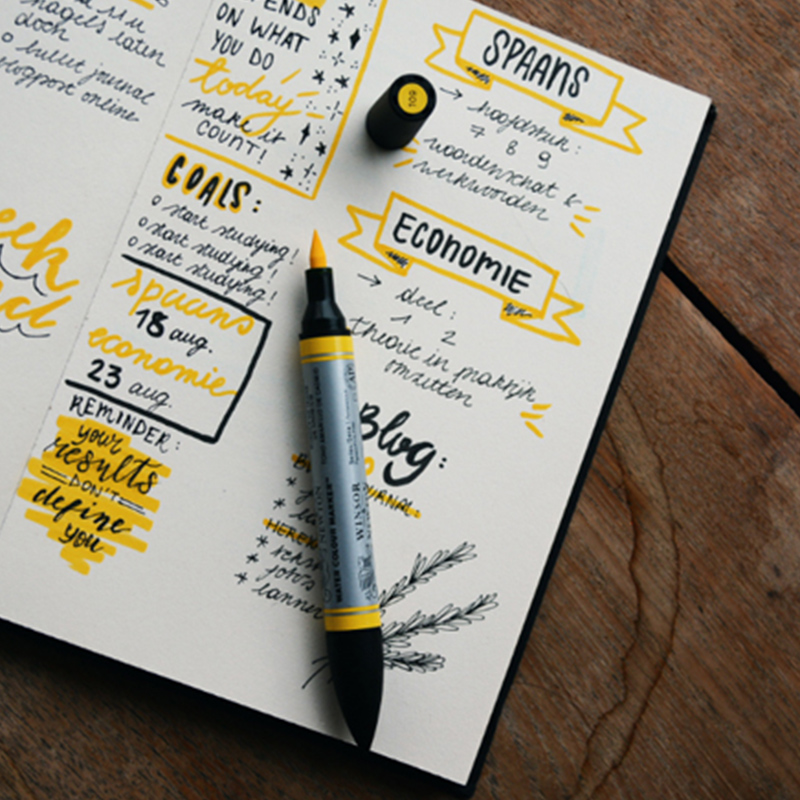 nagels laten
doen
o bullet journal
blogpost online
ON WHAT
YOU DO
today
make it
COUNT!
GOALS:
o start studying!
o start studying!
o start studying!
spaans
18 aug.
economie
23 aug.
REMINDER:
your
results
DON'T
define
you
SPAANS
→ hoofdstuk:
7 8 9
woordenschat &
werkwoorden
ECONOMIE
→ deel:
1 2
theorie in praktijk
omzetten
Blog:
109
WATER COLOUR MARKER™
WINSOR